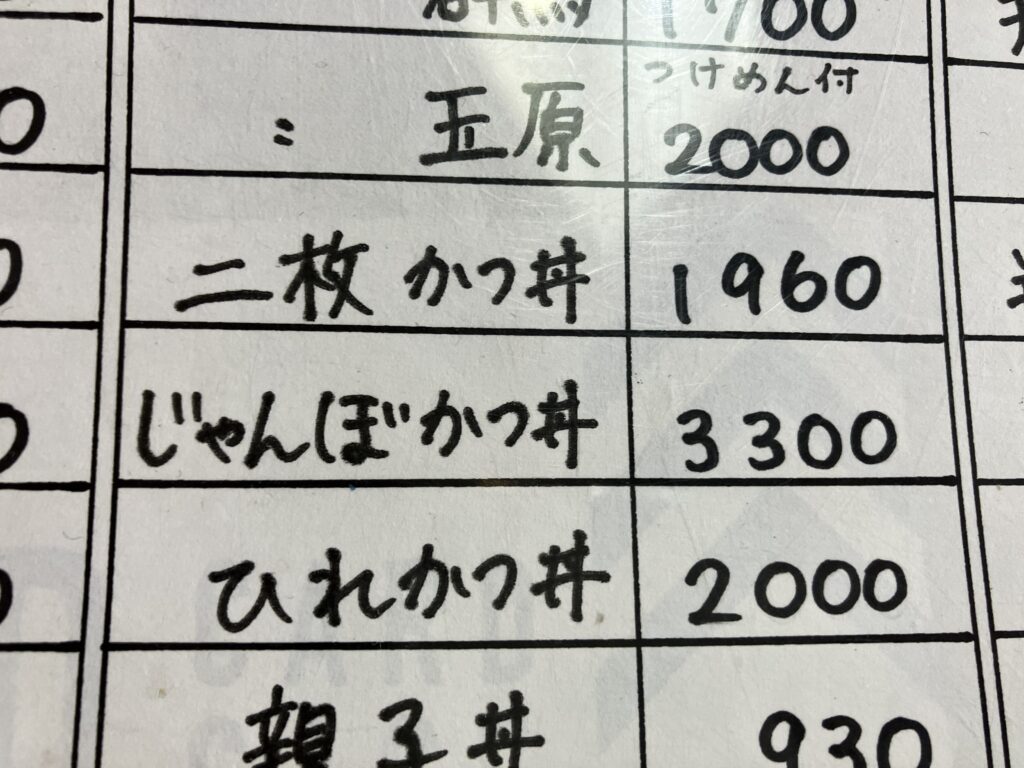 1700
つけめん付
〃 玉原 2000
二枚かつ丼 1960
じゃんぼかつ丼 3300
ひれかつ丼 2000
親子丼 930